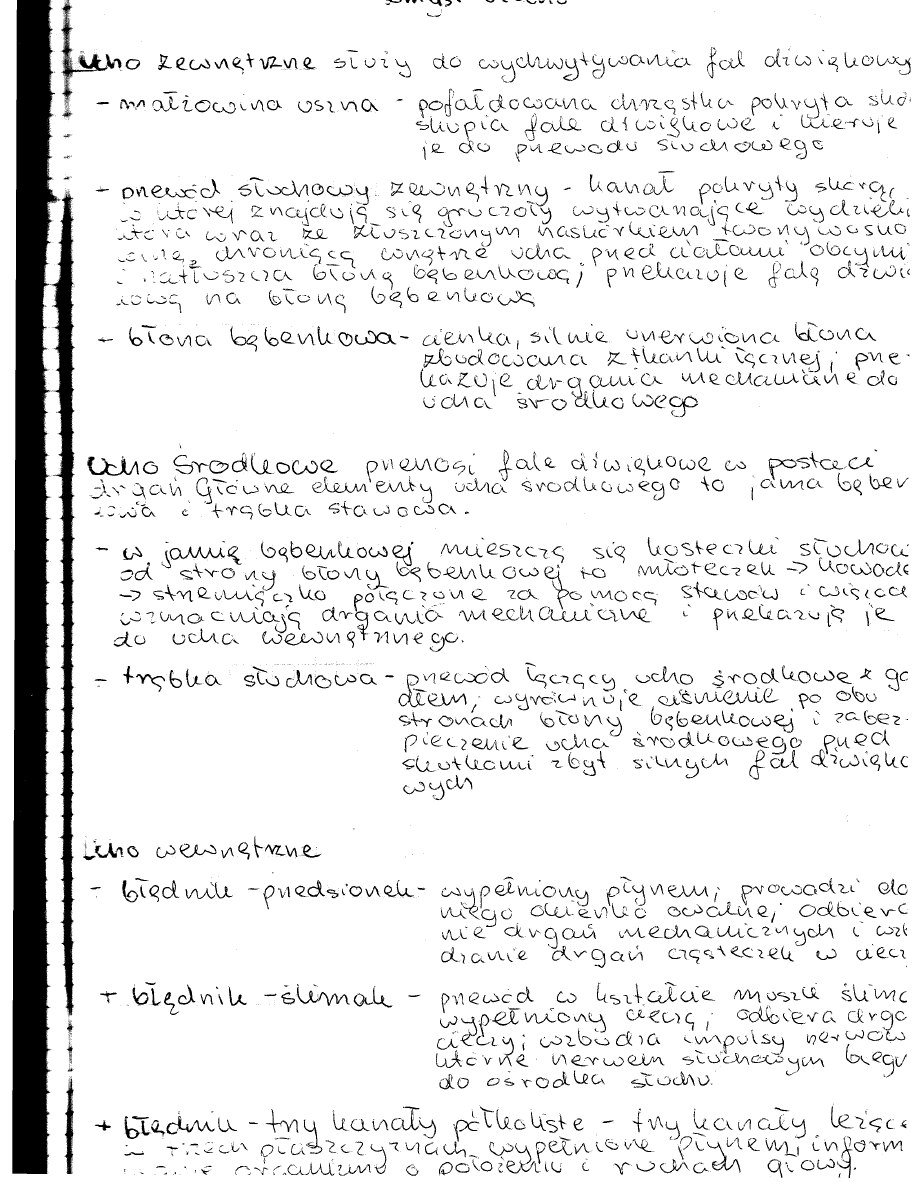 zmysł słuchu
Ucho zewnętrzne służy do wychwytywania fal dźwiękowy
- małżowina uszna - pofałdowana chrząstka pokryta skó
skupia fale dźwiękowe i kieruje
je do przewodu słuchowego
- przewód słuchowy zewnętrzny - kanał pokryty skórą,
w której znajdują się gruczoły wytwarzające wydzieli
która wraz ze złuszczonym naskórkiem tworzy wosko
winę, chroniącą wnętrze ucha przed ciałami obcymi
i natłuszcza błonę bębenkową; przekazuje falę dźwię
kową na błonę bębenkową
- błona bębenkowa - cienka, silnie unerwiona błona
zbudowana z tkanki łącznej; prze-
kazuje drgania mechaniczne do
ucha środkowego
Ucho środkowe przenosi fale dźwiękowe w postaci
drgań Główne elementy ucha środkowego to jama bęben
kowa i trąbka stawowa.
- w jamię bębenkowej mieszczą się kosteczki słuchow
od strony błony bębenkowej to młoteczek → kowade
→ strzemiączko połączone za pomocą stawów i więzade
wzmacniają drgania mechaniczne i przekazują je
do ucha wewnętrznego.
- trąbka słuchowa - przewód łączący ucho środkowe z ga
dłem; wyrównuje ciśnienie po obu
stronach błony bębenkowej i zabez-
pieczenie ucha środkowego przed
skutkami zbyt silnych fal dźwięko
wych
Ucho wewnętrzne
- błędnik - przedsionek - wypełniony płynem; prowadzi do
niego okienko owalne; odbiera
nie drgań mechanicznych i wzb
dzanie drgań cząsteczek w ciecz
+ błędnik - ślimak - przewód w kształcie muszli ślima
wypełniony cieczą; odbiera drga
cieczy; wzbudza impulsy nerwow
które nerwem słuchowym biegn
do ośrodka słuchu.
+ błędnik - trzy kanały półkoliste - trzy kanały leżące
w trzech płaszczyznach, wypełnione płynem; inform
organizmo o położeniu i ruchach głowy.